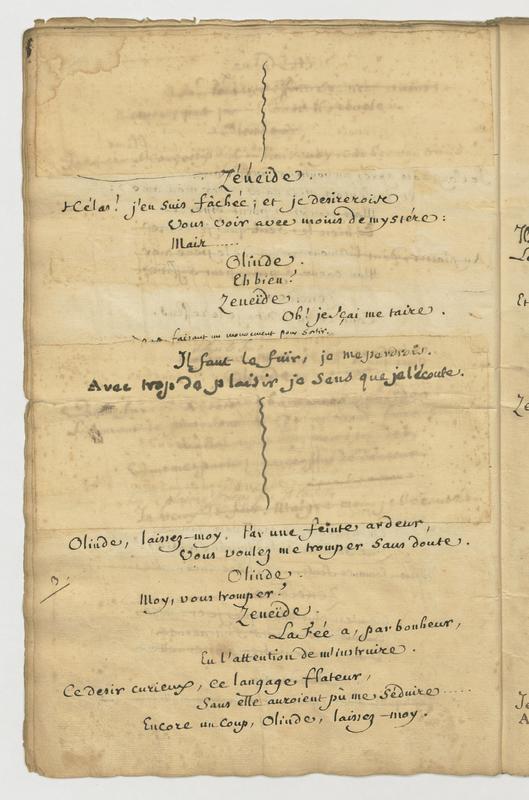 Zéneïde.
Hélas! j'en suis fâchée; et je desirerois
Vous voir avec moins de mystére:
Mais......
Olinde.
Eh bien?
Zeneïde.
Oh! je sçai me taire.
faisant un mouvement pour sortir.
Il faut le fuir, je me perdrois.
Avec trop de plaisir je sens que je l'écoute.
Olinde, laissez-moy. Par une feinte ardeur,
Vous voulez me tromper sans doute.
Olinde.
Moy, vous tromper?
Zeneïde.
La Fée a, par bonheur,
Eu l'attention de m'instruire.
Ce desir curieux, ce langage flateur,
Sans elle auroient pû me séduire.....
Encore un coup, Olinde, laissez-moy.